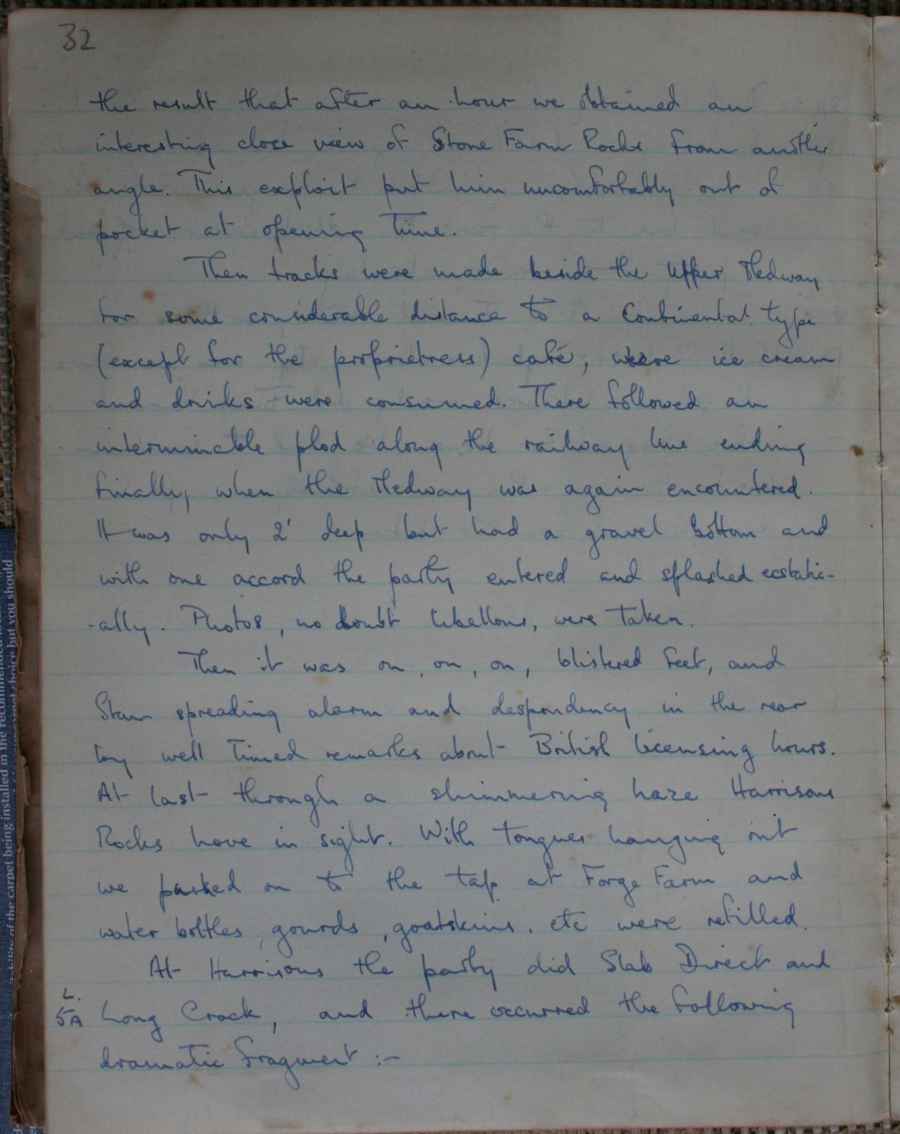 32
the result that after an hour we obtained an
interesting close view of Stone Farm Rocks from another
angle. This exploit put him uncomfortably out of
pocket at opening time.
Then tracks were made beside the Upper Medway
for some considerable distance to a Continental type
(except for the proprietress) café, where ice cream
and drinks were consumed. There followed an
interminable plod along the railway line ending
finally, when the Medway was again encountered.
It was only 2' deep but had a gravel bottom and
with one accord the party entered and splashed ecstatic-
-ally. Photos, no doubt libellous, were taken.
Then it was on, on, on, blistered feet, and
Stan spreading alarm and despondency in the rear
by well timed remarks about British licensing hours.
At last through a shimmering haze Harrisons
Rocks hove in sight. With tongues hanging out
we pushed on to the tap at Forge Farm and
water bottles, gourds, goatskins. etc were refilled.
At Harrisons the party did Slab Direct and
L.
5A Long Crack, and there occurred the following
dramatic fragment :-
of the carpet being installed in the recommended
choice but you should